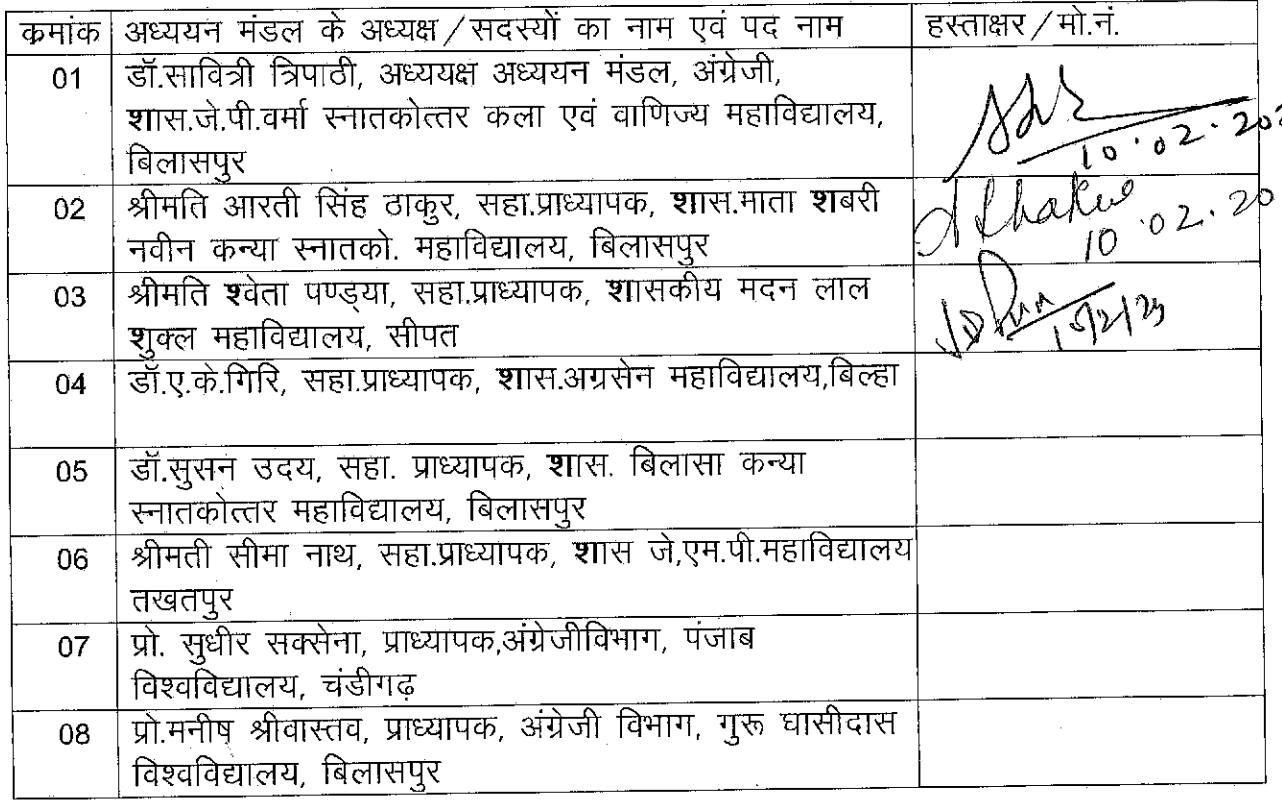 कमांक अध्ययन मंडल के अध्यक्ष/सदस्यों का नाम एवं पद नाम हस्ताक्षर/मो.नं.
01 डॉ.सावित्री त्रिपाठी, अध्ययक्ष अध्ययन मंडल, अंग्रेजी,
शास.जे.पी.वर्मा स्नातकोत्तर कला एवं वाणिज्य महाविद्यालय,
बिलासपुर
10.02.202
02 श्रीमति आरती सिंह ठाकुर, सहा.प्राध्यापक, शास.माता शबरी
नवीन कन्या स्नातको. महाविद्यालय, बिलासपुर
10.02.20
03 श्रीमति श्वेता पण्ड्या, सहा.प्राध्यापक, शासकीय मदन लाल
शुक्ल महाविद्यालय, सीपत
04 डॉ.ए.के.गिरि, सहा.प्राध्यापक, शास.अग्रसेन महाविद्यालय,बिल्हा
05 डॉ.सुसन उदय, सहा. प्राध्यापक, शास. बिलासा कन्या
स्नातकोत्तर महाविद्यालय, बिलासपुर
06 श्रीमती सीमा नाथ, सहा.प्राध्यापक, शास जे,एम.पी.महाविद्यालय
तखतपुर
07 प्रो. सुधीर सक्सेना, प्राध्यापक,अंग्रेजीविभाग, पंजाब
विश्वविद्यालय, चंडीगढ़
08 प्रो.मनीष श्रीवास्तव, प्राध्यापक, अंग्रेजी विभाग, गुरू घासीदास
विश्वविद्यालय, बिलासपुर